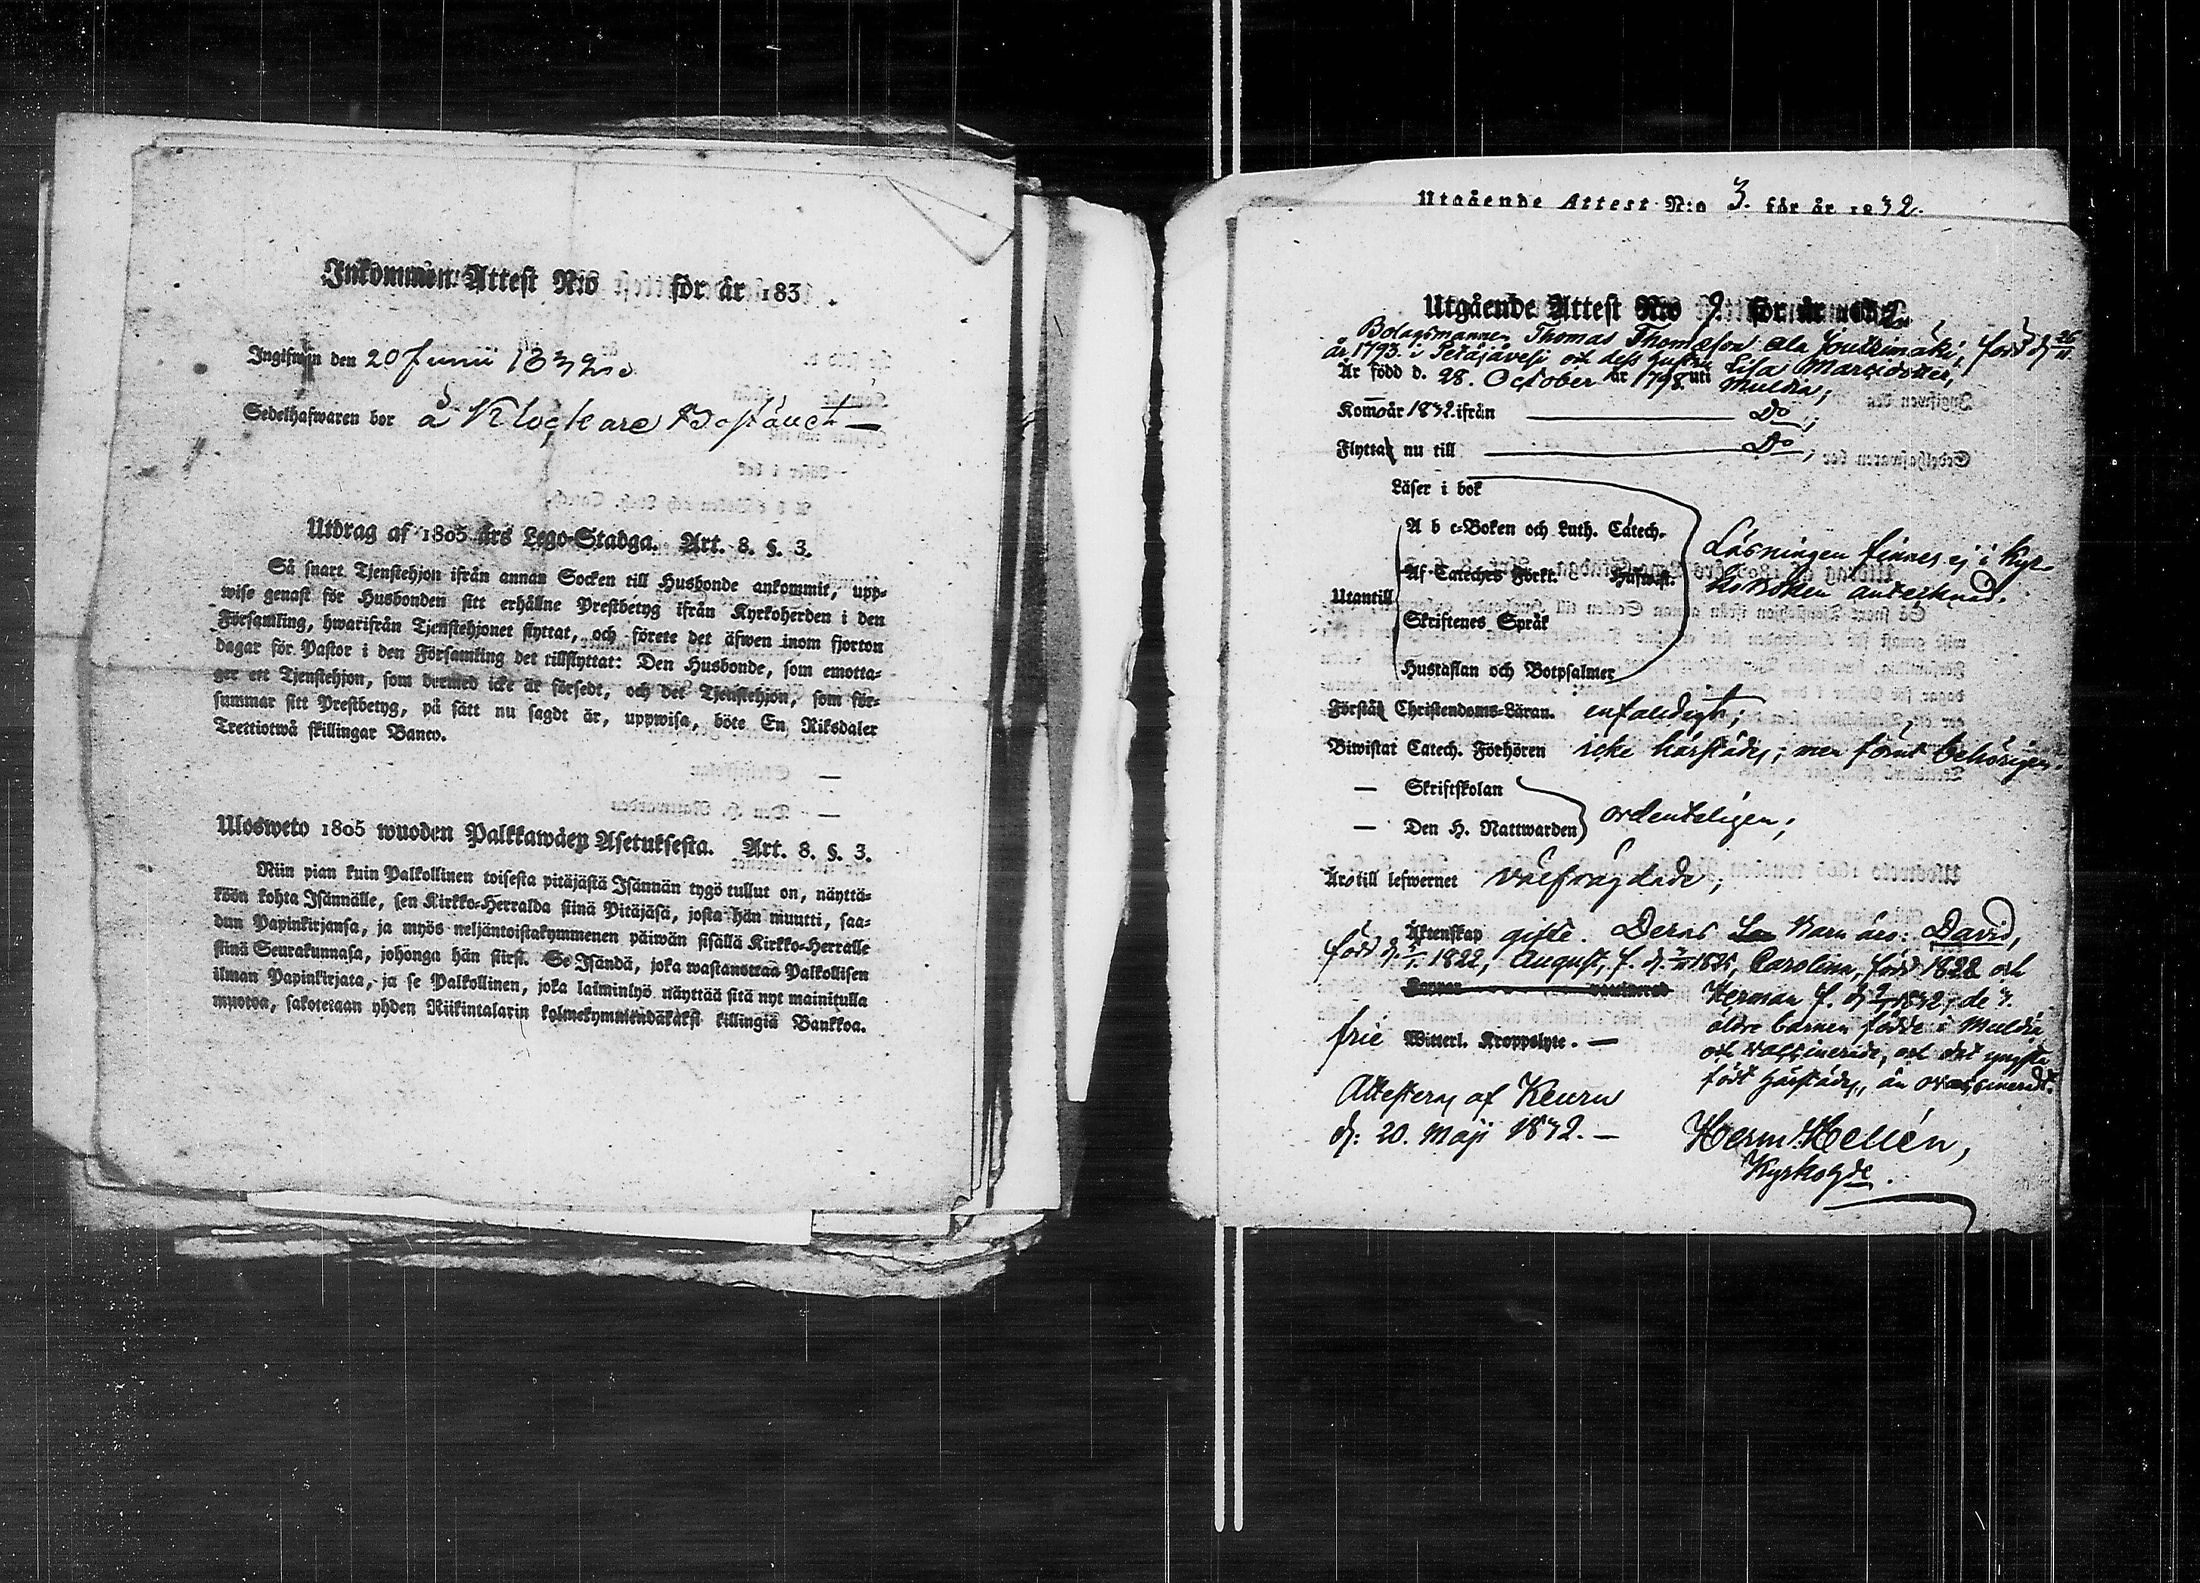 Inkommen Attest N:o för år 183 .
Ingifwen den 20 Junii 1832
Sedelhafwaren bor å Klockare Bostäuet —
Utdrag af 1805 års Lego-Stadga. Art. 8. §. 3.
Så snart Tjenstehjon ifrån annan Socken till Husbonde ankommit, upp-
wise genast för Husbonden sitt erhållne Prestbetyg ifrån Kyrkoherden i den
Församling, hwarifrån Tjenstehjonet flyttat, och förete det äfwen inom fjorton
dagar för Pastor i den Församling det tillflyttat: Den Husbonde, som emotta-
ger ett Tjenstehjon, som dermed icke är försedt, och det Tjenstehjon, som för-
summar sitt Prestbetyg, på sätt nu sagdt är, uppwisa, böte En Riksdaler
Trettiotwå skillingar Banco.
Ulosweto 1805 wuoden Palkkawäen Asetuksesta. Art. 8. §. 3.
Niin pian kuin Palkollinen toisesta pitäjästä Isännän tygö tullut on, näyttä-
köön kohta Isännälle, sen Kirkko-Herralda siinä Pitäjäsä, josta hän muutti, saa-
dun Papinkirjansa, ja myös neljäntoistakymmenen päiwän sisällä Kirkko-Herralle
siinä Seurakunnasa, johonga hän siirsi. Se Isändä, joka wastanottaa Palkollisen
ilman Papinkirjata, ja se Palkollinen, joka laiminlyö näyttää sitä nyt mainitulla
muotoa, sakotetaan yhden Riikintalarin kolmekymmendäkaksi killingiä Bankkoa.
Utgående Attest N:o 3. för år 1832.
Utgående Attest N:o 9. för år 1832
Bolagsmannen Thomas Thomæson Joutsimäki, född d. 26/11
år 1793. i Petäjävesi och dess hustru Lisa Marcidotter,
Är född d. 28. October år 1798. uti Muldia;
Kom år 1832. ifrån — Do;
Flyttat nu till — Do;
Läser i bok
A b c-Boken och Luth. Catech.
Af Cateches Förkl. Hufwst.
Utantill
Skriftenes Språk
Hustaflan och Botpsalmer
Läsningen finnes ej i Kyr-
koBoken antecknad.
Förstår Christendoms-Läran. enfaldigt;
Biwistat Catech. Förhören icke härstädes; men förut behörigen.
— Skriftskolan
— Den H. Nattwarden ordenteligen;
Äro till lefwernet välfrägdade;
Äktenskap gifte. Deras Barn äro: David,
född d. 1822, August, f. d. 1825, Carolina, född 1828 och
Koppor vaccinerad Herman f. d. 1832; de 3.
äldre barnen födde i Muldia
frie Witterl. Kroppslyte. —
och vaccinerade, och det yngsta
födt härstädes, än ovaccineradt.
Attesteras af Keuru
d: 20. Maji 1832. —
Herm: Hellén,
Kyrkohde.